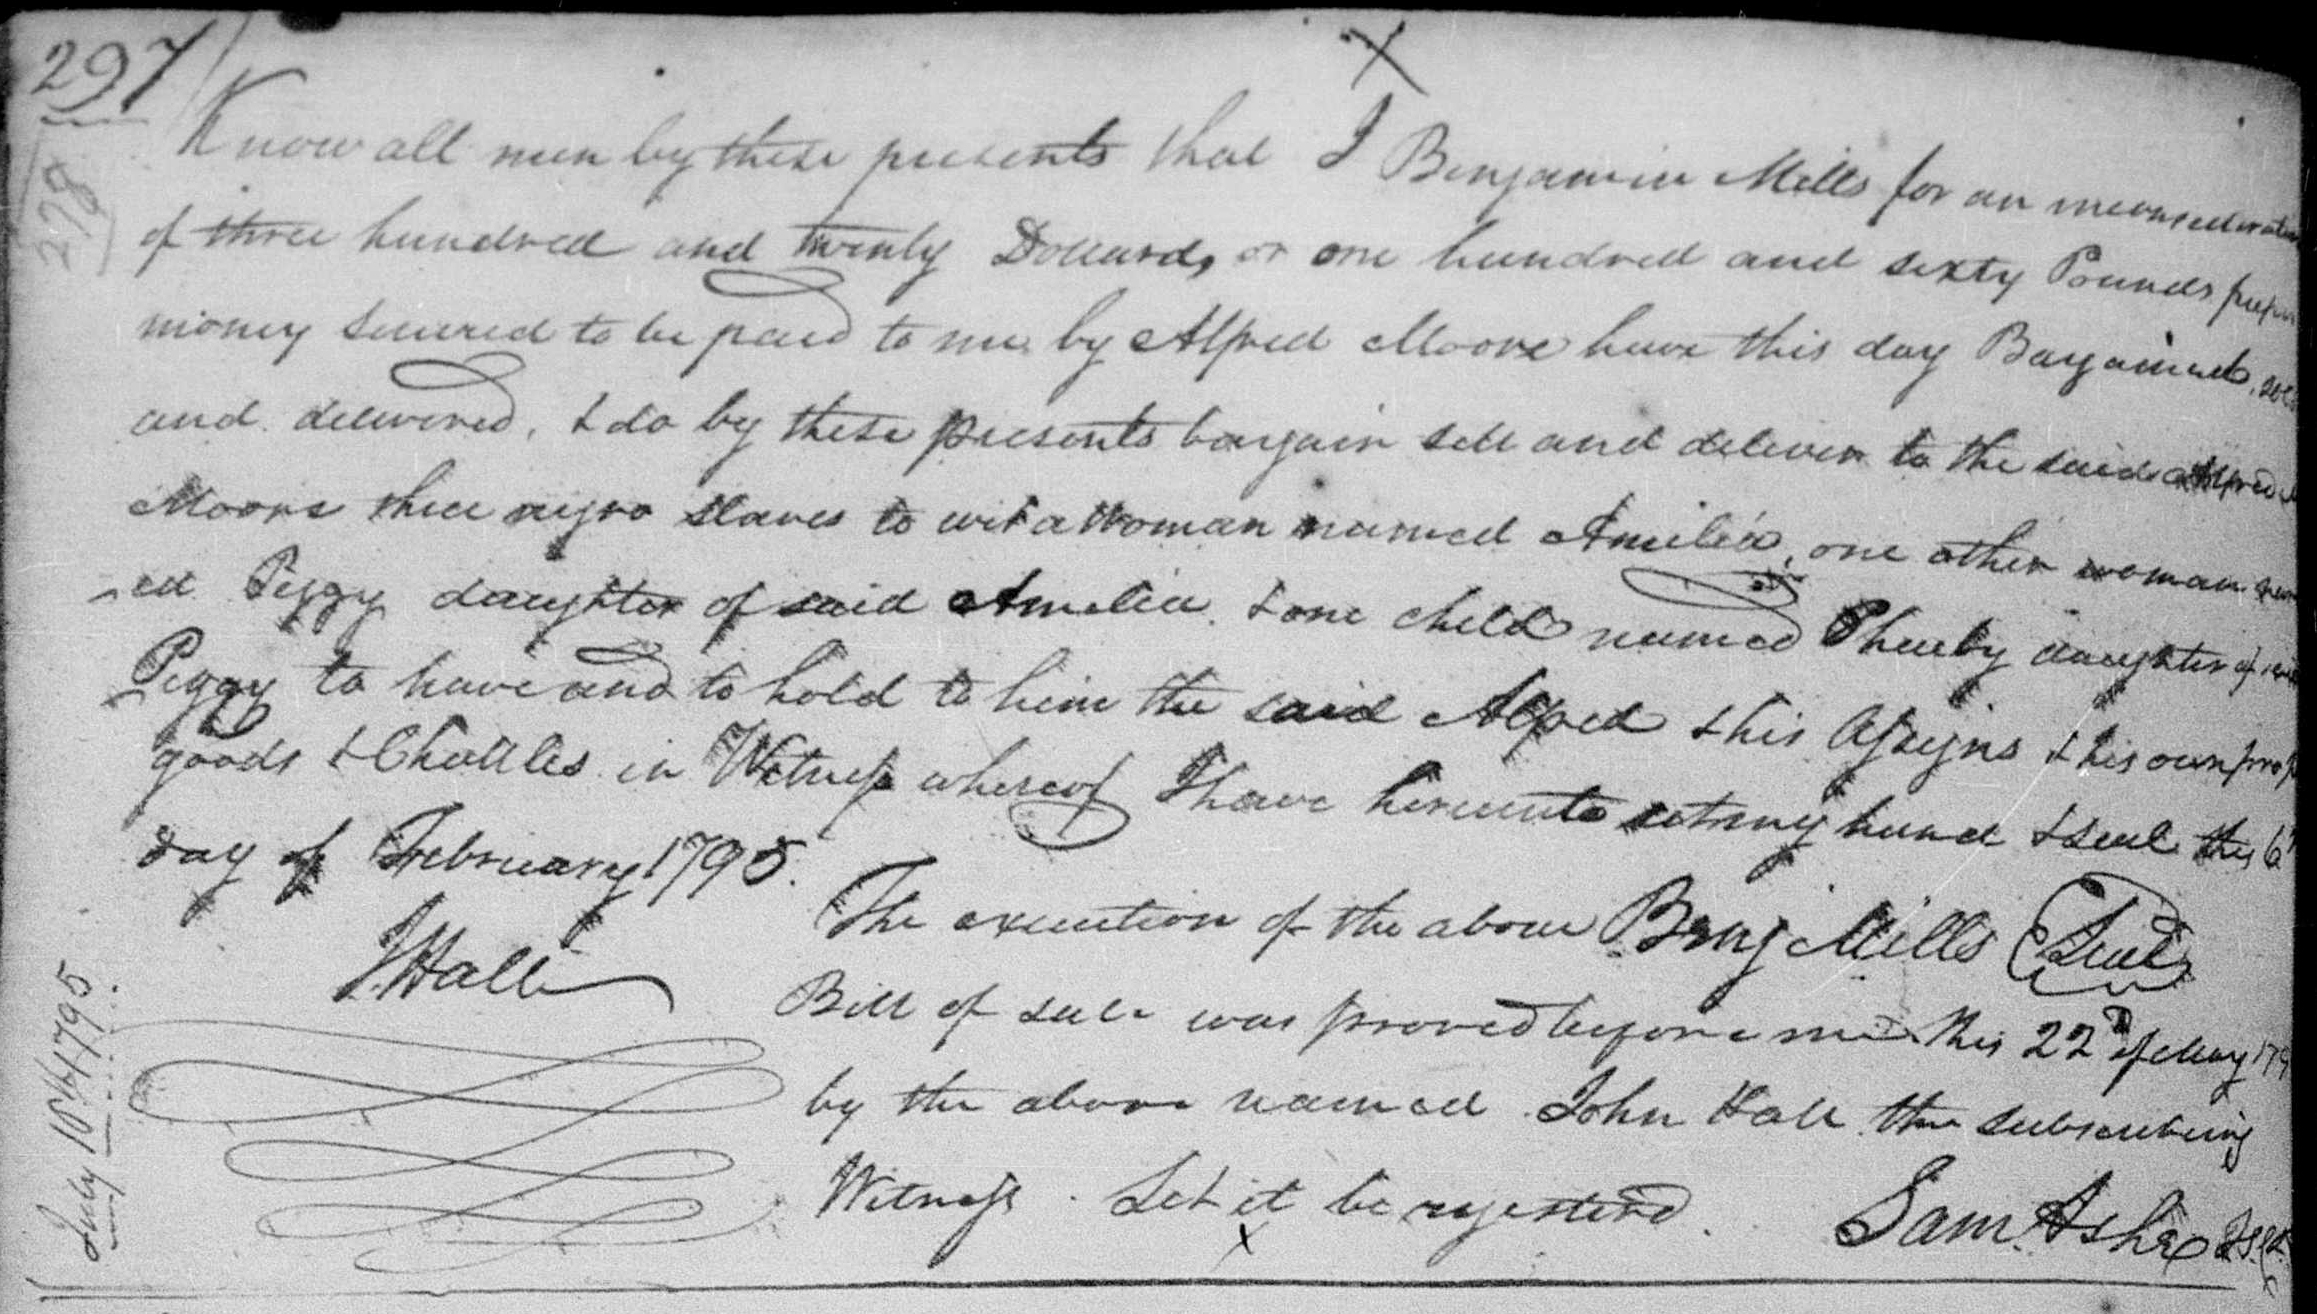 297
278
Know all men by these presents that I Benjamin Mills for an inconsideration
of three hundred and twenty Dollars, or one hundred and sixty Pounds paper
money secured to be paid to me by Alfred Moore have this day Bargained, sold
and delivered, & do by these presents bargain sell and deliver to the said Alfred
Moore three negro slaves to wit a Woman named Amelia, one other woman nam
ed Peggy daughter of said Amelia & one child named Pheeby daughter of said
Peggy to have and to hold to him the said Alfred & his Assigns & his own prop
goods & Chattles in Witness whereof I have hereunto set my hand & seal this 6th
day of February 1795.
J. Hall
The execution of the above Benj Mills Seal
Bill of sale was proved before me this 22d of May 179
by the above named John Hall the subscribing
Witness. Let it be registered.
Sam. Ashe
July 10th 1795.